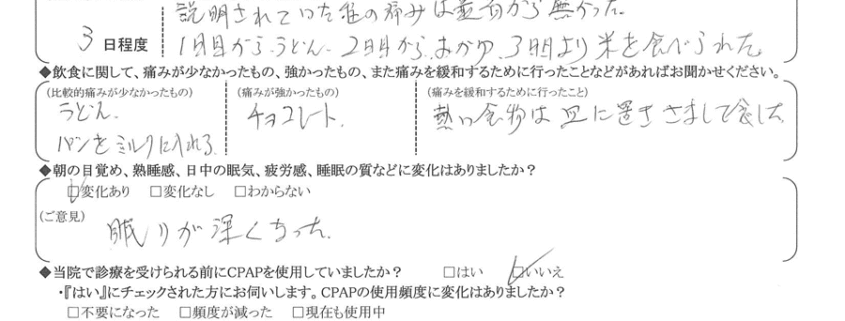 説明されていた程の痛みは最初から無かった。
3 日程度
1日目からうどん、2日目からおかゆ、3日目より米を食べられた。
◆飲食に関して、痛みが少なかったもの、強かったもの、また痛みを緩和するために行ったことなどがあればお聞かせください。
(比較的痛みが少なかったもの) (痛みが強かったもの) (痛みを緩和するために行ったこと)
うどん、 チョコレート、 熱い食物は皿に置きさまして食した
パンをミルクに入れる
◆朝の目覚め、熟睡感、日中の眠気、疲労感、睡眠の質などに変化はありましたか？
☑変化あり □変化なし □わからない
(ご意見)
眠りが深くなった。
◆当院で診療を受けられる前にCPAPを使用していましたか？ □はい ☑いいえ
・『はい』にチェックされた方にお伺いします。CPAPの使用頻度に変化はありましたか？
□不要になった □頻度が減った □現在も使用中